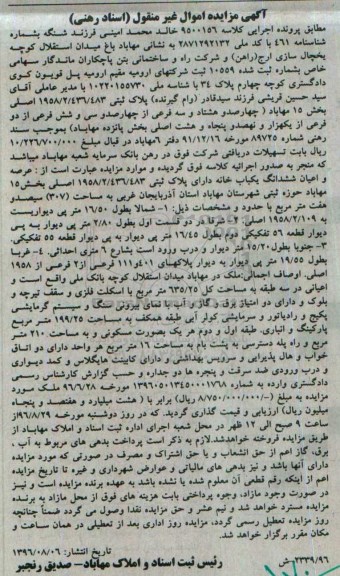 آگهی مزایده اموال غیر منقول (اسناد رهنی)
مطابق پرونده اجرایی کلاسه ۹۵۰۰۱۵۶ خالد محمد امینی فرزند شنگه بشماره
شناسنامه ۴۶۱ با کد ملی ۲۸۷۱۲۹۲۱۳۲ به نشانی مهاباد باغ میدان استقلال کوچه
یخچال سازی ارج(راهن) و شرکت راه و ساختمانی بتن پاچکاران ماندگار سهامی
خاص بشماره ثبت شده ۱۰۵۵۹ ثبت شرکتهای ارومیه مقیم ارومیه پل قویون کوی
دادگستری کوچه چهارم پلاک ۳۴ با شناسه ملی ۱۰۲۲۰۱۵۵۷۳۰ با مدیر عاملی آقای
سید حسین قریشی فرزند سیدقادر (وام گیرنده) پلاک ثبتی ۱۹۵۸/۲/۴۳۶/۴۸۳ اصلی
بخش ۱۵ مهاباد ( چهارصدو هشتاد و سه فرعی از چهارصدو سی و شش فرعی از دو
فرعی از یکهزار و نهصدو پنجاه و هشت اصلی بخش پانزده مهاباد) بموجب سند
رهنی شماره ۸۹۷۲۵ مورخه ۹۱/۱۲/۱۶ دفتر ۶مهاباد در قبال مبلغ ۱۰/۲۳۶/۷۰۰/۰۰۰
ریال بابت تسهیلات دریافتی شرکت فوق در رهن بانک سرمایه شعبه مهاباد میباشد
که منجر به صدور اجرائیه کلاسه فوق گردیده و مورد مزایده عبارت است از : عرصه
و اعیان ششدانگ یکباب خانه دارای پلاک ثبتی ۱۹۵۸/۲/۴۳۶/۴۸۳ اصلی بخش۱۵
مهاباد حوزه ثبتی شهرستان مهاباد استان آذربایجان غربی به مساحت (۳۰۷) سیصدو
هفت متر مربع با حدود و مشخصات ذیل: ۱- شمالا بطول ۱۶/۵۰ متر پی دیواریست
به ۱۹۵۸/۲/۱۰۹ اصلی ۲- شرقا در دو قسمت اول بطول ۲/۸۰ متر پی دیوار به پی
دیوار قطعه ۵۶ تفکیکی دوم بطول ۱۶/۴۵ متر پی دیوار به پی دیوار قطعه ۵۵ تفکیکی.
۳- جنوبا بطول۱۵/۲۰ متر دیوار و درب ورود است بشارع ۶ متری احداثی. ۴- غربا
بطول ۱۹/۵۵ متر پی دیوار به دیوار پلاکهای ۴۰۱و۱۱۱ فرعی از۲ فرعی از ۱۹۵۸
اصلی. اوصاف اجمالی:ملک در مهاباد میدان استقلال کوچه بانک ملی واقع است و
اعیانی در سه طبقه به مساحت کل ۶۳۵/۲۵ متر مربع با اسکلت فلزی و سقف تیرچه و
بلوک و دارای دو امتیاز برق و گاز و آب با نمای بیرونی سنگ و سیستم گرمایشی
پکیج و رادیاتور و سرمایشی کولر آبی طبقه همکف به مساحت ۱۹۹/۲۵ متر مربع
پارکینگ و انباری. طبقه اول و دوم هر یک بصورت مسکونی و به مساحت ۲۱۰ متر
مربع و راه پله دسترسی به پشت بام به مساحت ۱۶ متر مربع هر واحد دارای دو اتاق
خواب و هال پذیرایی و سرویس بهداشتی و دارای کابینت هایگلاس و کمد دیواری
و درب ورودی ضد سرقت و پنجره ها دو جداره و حسب گزارش کارشناس رسمی
دادگستری وارده به شماره ۱۳۹۶۰۵۰۱۳۴۵۰۰۰۱۷۶۸ مورخه ۹۶/۶/۲۸ ملک مورد
مزایده به مبلغ (-/۸/۷۵۰/۰۰۰/۰۰۰ ریال) برابر با ( هشت میلیارد و هفتصد و پنجاه
میلیون ریال) ارزیابی و قیمت گذاری گردید. که در روز دوشنبه مورخه ۹۶/۸/۲۹از
ساعت ۹ صبح الی ۱۲ ظهر در محل شعبه اجرای اداره ثبت اسناد و املاک مهاباد از
طریق مزایده فروخته خواهدشد.لازم به ذکر است پرداخت بدهی های مربوط به آب ،
برق، گاز اعم از حق انشعاب و یا حق اشتراک و مصرف در صورتی که مورد مزایده
دارای آنها باشد و نیز بدهی های مالیاتی و عوارض شهرداری و غیره تا تاریخ مزایده
اعم از اینکه رقم قطعی آن معلوم شده یا نشده باشد به عهده برنده مزایده است و نیز
در صورت وجود مازاد، وجوه پرداختی بابت هزینه های فوق از محل مازاد به برنده
مزایده مسترد خواهد شد و نیم عشر و حق مزایده نقدا وصول می گردد ضمنا چنانچه
روز مزایده تعطیل رسمی گردد، مزایده روز اداری بعد از تعطیلی در همان ساعت و
مکان مقرر برگزار خواهد شد.
تاریخ انتشار: ۱۳۹۶/۰۸/۰۶
۲۳۳۹/۹۶-ش رئیس ثبت اسناد و املاک مهاباد- صدیق رنجبر